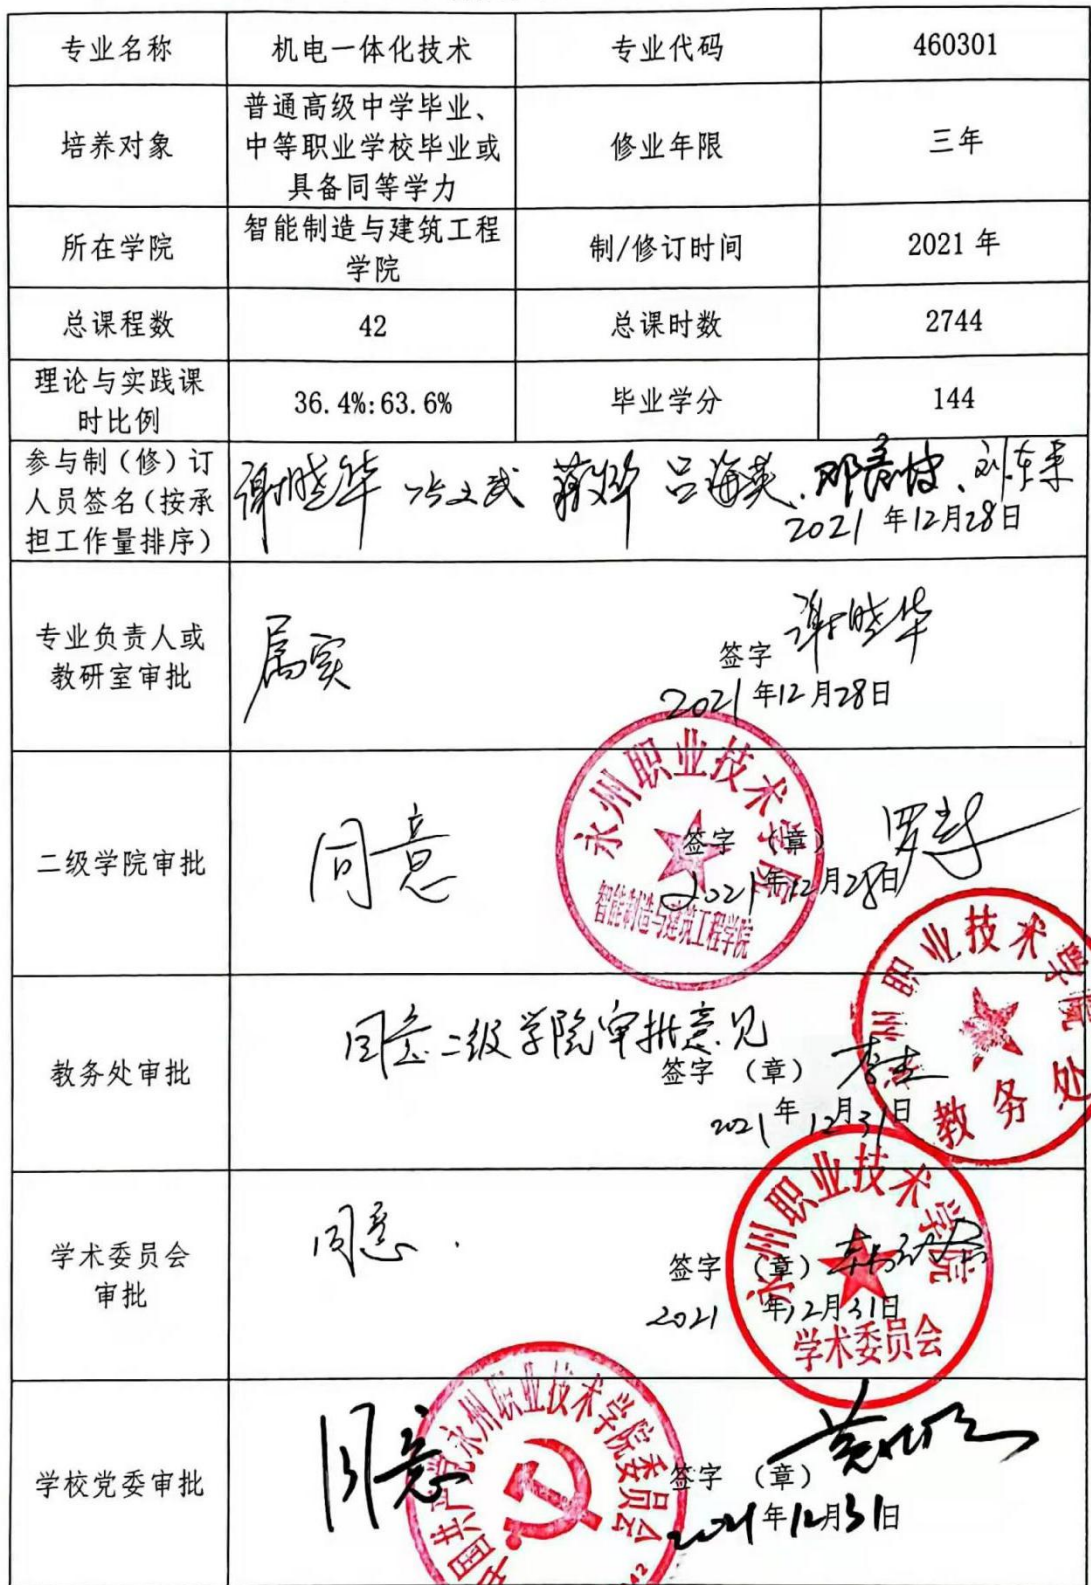 专业名称 机电一体化技术 专业代码 460301
培养对象 普通高级中学毕业、 修业年限 三年
中等职业学校毕业或
具备同等学力
所在学院 智能制造与建筑工程 制/修订时间 2021 年
学院
总课程数 42 总课时数 2744
理论与实践课 36.4%:63.6% 毕业学分 144
时比例
参与制（修）订
人员签名（按承
担工作量排序）
谢晓华 吕海英、刘东来
2021 年12月28日
专业负责人或
教研室审批
属实
签字 谢晓华
2021 年12月28日
二级学院审批
同意
签字 （章）
2021年12月28日
永州职业技术学院
智能制造与建筑工程学院
教务处审批
同意二级学院审批意见
签字 （章）
2021 年 12月31日
永州职业技术学院
教务处
学术委员会
审批
同意.
签字 （章）
2021 年12月31日
永州职业技术学院
学术委员会
学校党委审批
同意
签字 （章）
2021年12月31日
中国共产党永州职业技术学院委员会